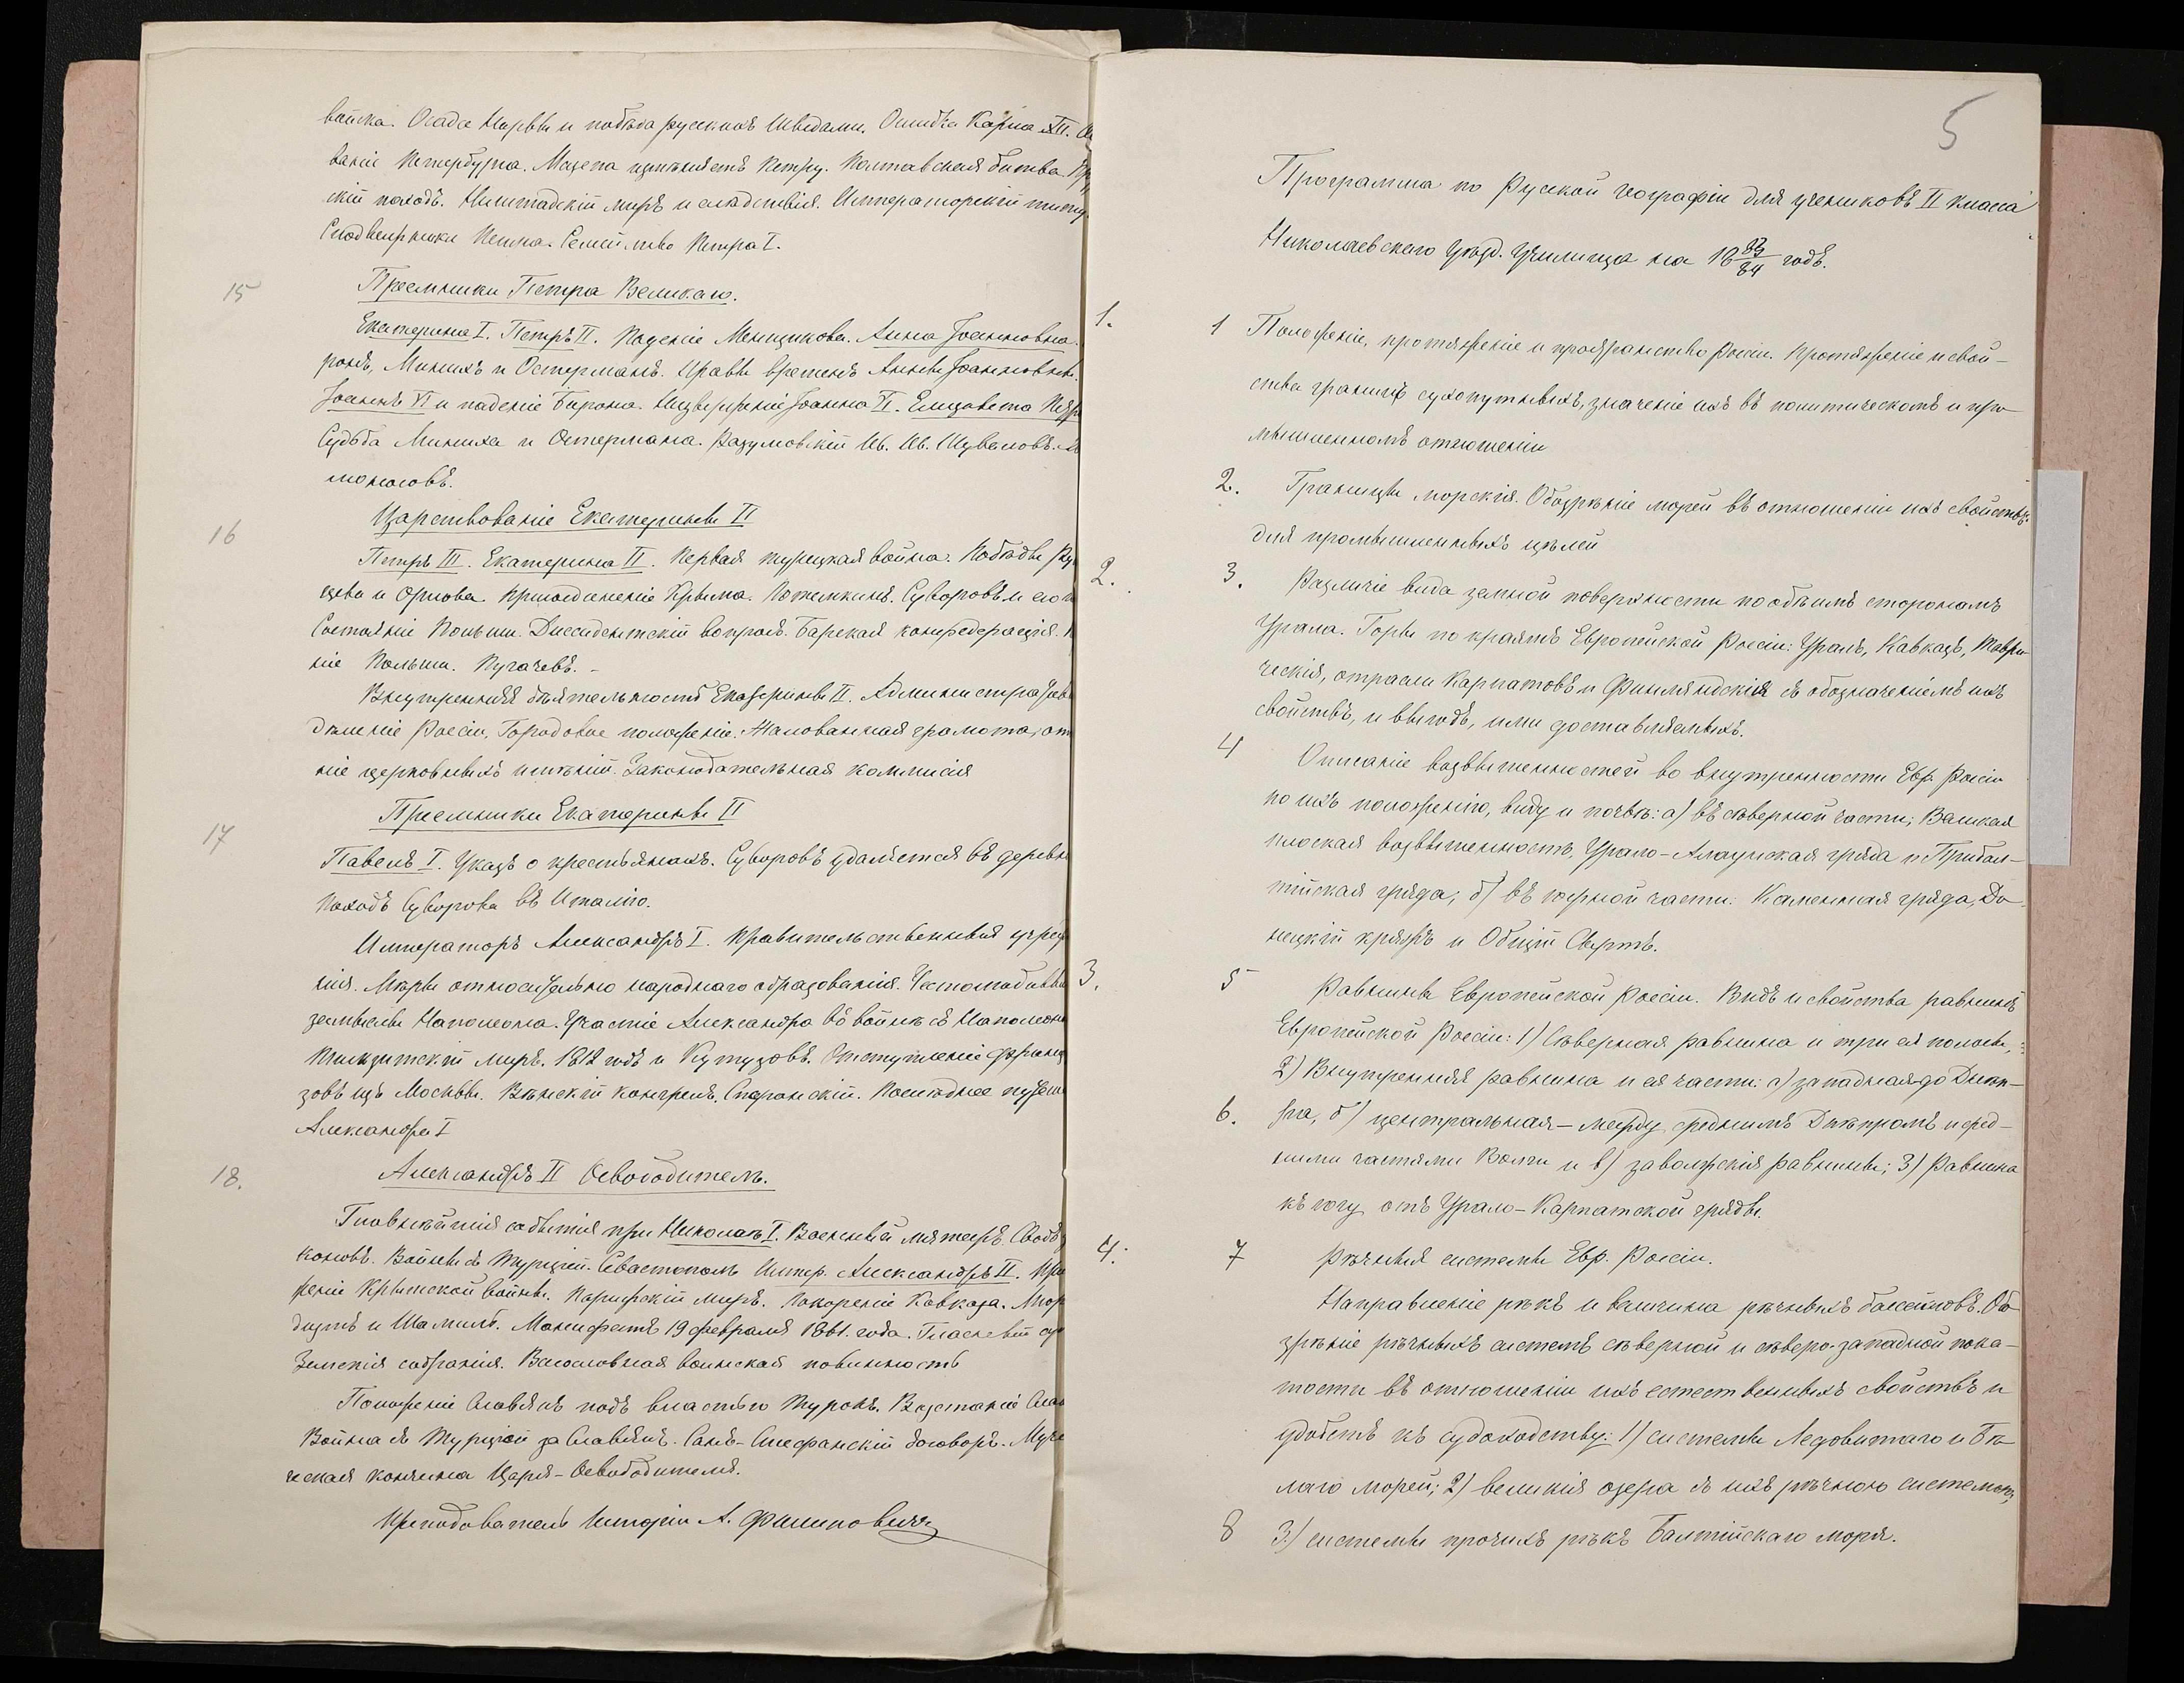 войска. Осада Нарвы и победа русскихъ Шведами. Ошибка Карла XII. Ос
ваніе Петербурга. Мазепа измѣняетъ Петру. Полтавская битва. Пр
скій походъ. Ништадскій миръ и слѣдствія. Императорскій титу
Сподвижники Петра. Семейство Петра I.
15 Преемники Петра Великаго.
Екатерина I. Петръ II. Паденіе Меншикова. Анна Іоанновна.
ронъ, Минихъ и Остерманъ. Нравы временъ Анны Іоанновны.
Іоаннъ VI и паденіе Бирона. Низверженіе Іоанна VI. Елизавета Петр
Судьба Миниха и Остермана. Разумовскій Ив. Ив. Шуваловъ. Ло
моносовъ.
16 Царствованіе Екатерины II
Петръ III. Екатерина II. Первая турецкая война. Побѣды Рум
цева и Орлова. Присоединеніе Крыма. Потемкинъ. Суворовъ и его п
Состояніе Польши. Диссидентскій вопросъ. Барская конфедерація.
ніе Польши. Пугачевъ. –
Внутренняя дѣятельность Екатерины II. Административ
дѣленіе Россіи. Городовое положеніе. Жалованная грамота, от
ніе церковныхъ имѣній. Законодательная коммисія
Преемники Екатерины II
17 Павелъ I. Указъ о крестьянахъ. Суворовъ удаляется въ деревн
Походъ Суворова въ Италію.
Императоръ Александръ I. Правительственныя учреж
нія. Мѣры относительно народнаго образованія. Честолюбивы
замыслы Наполеона. Участіе Александра въ войнѣ съ Наполеоно
Тильзитскій миръ. 1812 годъ и Кутузовъ. Отступленіе францу
зовъ изъ Москвы. Вѣнскій конгресъ. Сперанскій. Последнее путеше
Александра I
18. Александръ II Освободитель.
Главнѣйшія событія при Николаѣ I. Военный мятежъ. Сводъ
коновъ. Войны съ Турціей. Севастополь Импер. Александръ II. Про
женіе Крымской войны. Парижскій миръ. Покореніе Кавказа. Мюр
дизмъ и Шамиль. Манифестъ 19 февраля 1861. года. Гласный суд
Земскія собранія. Всесословная воинская повинность
Положеніе Славянъ подъ властью Турокъ. Возстаніе Слав
Война съ Турціей за Славянъ. Санъ-Стефанскій договоръ. Муче
ческая кончина Царя-Освободителя.
Преподаватель Исторіи А. Филиповичъ
5
Программа по Русской географіи для учениковъ II класса
Николаевскаго Уѣзд. Училища на 18 83/84 годъ.
1. 1 Положеніе, протяженіе и пространство Россіи. Протяженіе и свой-
ства границъ сухопутныхъ, значеніе ихъ въ политическомъ и про-
мышленномъ отношеніи
2. Границы морскія. Обозрѣніе морей въ отношеніи ихъ свойствъ
для промышленныхъ цѣлей
2. 3. Различіе вида земной поверхности по обѣимъ сторонамъ
Урала. Горы по краямъ Европейской Россіи: Уралъ, Кавказъ, Таври-
ческія, отрасли Карпатовъ и Финляндскія съ обозначеніемъ ихъ
свойствъ, и выгодъ, ими доставляемыхъ.
4 Описаніе возвышенностей во внутренности Евр. Россіи
по ихъ положенію, виду и почвѣ: а) въ сѣверной части; Вашкая
плоская возвышенность, Урало-Алаунская гряда и Прибал-
тійская гряда; б) въ южной части: Каменная гряда, До-
нецкій кряжъ и Общій Сыртъ.
3. 5 Равнины Европейской Россіи. Видъ и свойства равнинъ
Европейской Россіи: 1) Сѣверная равнина и три ея полосы;
2) Внутренняя равнина и ея части: а) западная до Днѣп-
6. ра, б) центральная – между среднимъ Днѣпромъ и сред-
ними частями Волги и в) заволжскія равнины; 3) Равнина
къ югу отъ Урало-Карпатской гряды.
4. 7 Рѣчныя системы Евр. Россіи.
Направленіе рѣкъ и величина рѣчныхъ бассейновъ. Обо
зрѣніе рѣчныхъ системъ сѣверной и сѣверо-западной пока-
тости въ отношеніи ихъ естественныхъ свойствъ и
удобствъ къ судоходству: 1) системы Ледовитаго и Бѣ-
лаго морей; 2) великія озера съ ихъ рѣчною системою;
8 3) системы прочихъ рѣкъ Балтійскаго моря.